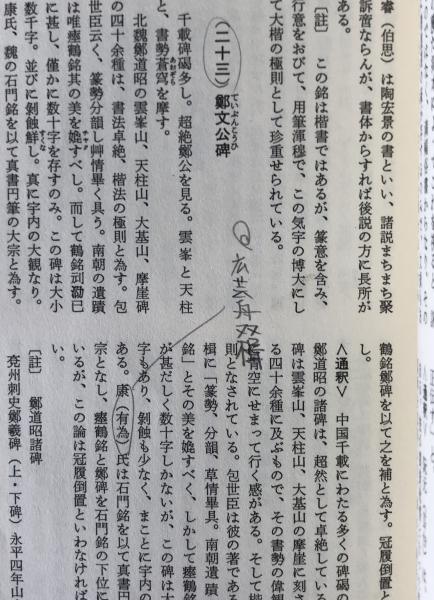 睿（伯思）は陶宏景の書といい、諸説まちまち聚
訴啻ならんが、書体からすれば後説の方に長所が
ある。
〔註〕 この銘は楷書ではあるが、篆意を含み、
行意をおびて、用筆渾穆で、この気字の博大にし
て大楷の極則として珍重せられている。
（二十三）鄭文公碑
ていぶんこうひ
千載碑碣多し。超絶鄭公を見る。雲峯と天柱
と、書勢蒼穹を摩す。
あおぞら
北魏鄭道昭の雲峯山、天柱山、大基山、摩崖碑
の四十余種は、書法卓絶、楷法の極則と為す。包
世臣云く、篆勢分韻し艸情畢く具う。南朝の遺蹟
は唯瘞鶴銘其の美を媲すべし。而して鶴銘剥泐已
に甚し、僅かに数十字を存すのみ。この碑は大小
数千字。並びに剝蝕鮮し。真に宇内の大観なり。
康氏、魏の石門銘を以て真書円筆の大宗と為す。
広芸舟双楫
鶴銘鄭碑を以て之を補と為す。冠履倒置と
し。
〈通釈〉 中国千載にわたる多くの碑碣の
鄭道昭の諸碑は、超然として卓絶している
碑は雲峯山、天柱山、大基山の摩崖に刻さ
る四十余種に及ぶもので、その書勢の偉観
青空にせまって行く感がある。そして楷
則となされている。包世臣は彼の著である
楫に「篆勢、分韻、草情畢具。南朝遺蹟
銘」とその美を媲すべく、しかして瘞鶴銘
が甚だしく数十字しかないが、この碑は大
字もあり、剝蝕も少なく、まことに宇内の
ある。康（有為）氏は石門銘を以て真書円
宗となし、瘞鶴銘と鄭碑を石門銘の下位に
いるが、この論は冠履倒置といわなければ
い。
〔註〕 鄭道昭諸碑
兗州刺史鄭羲碑（上・下碑）永平四年山